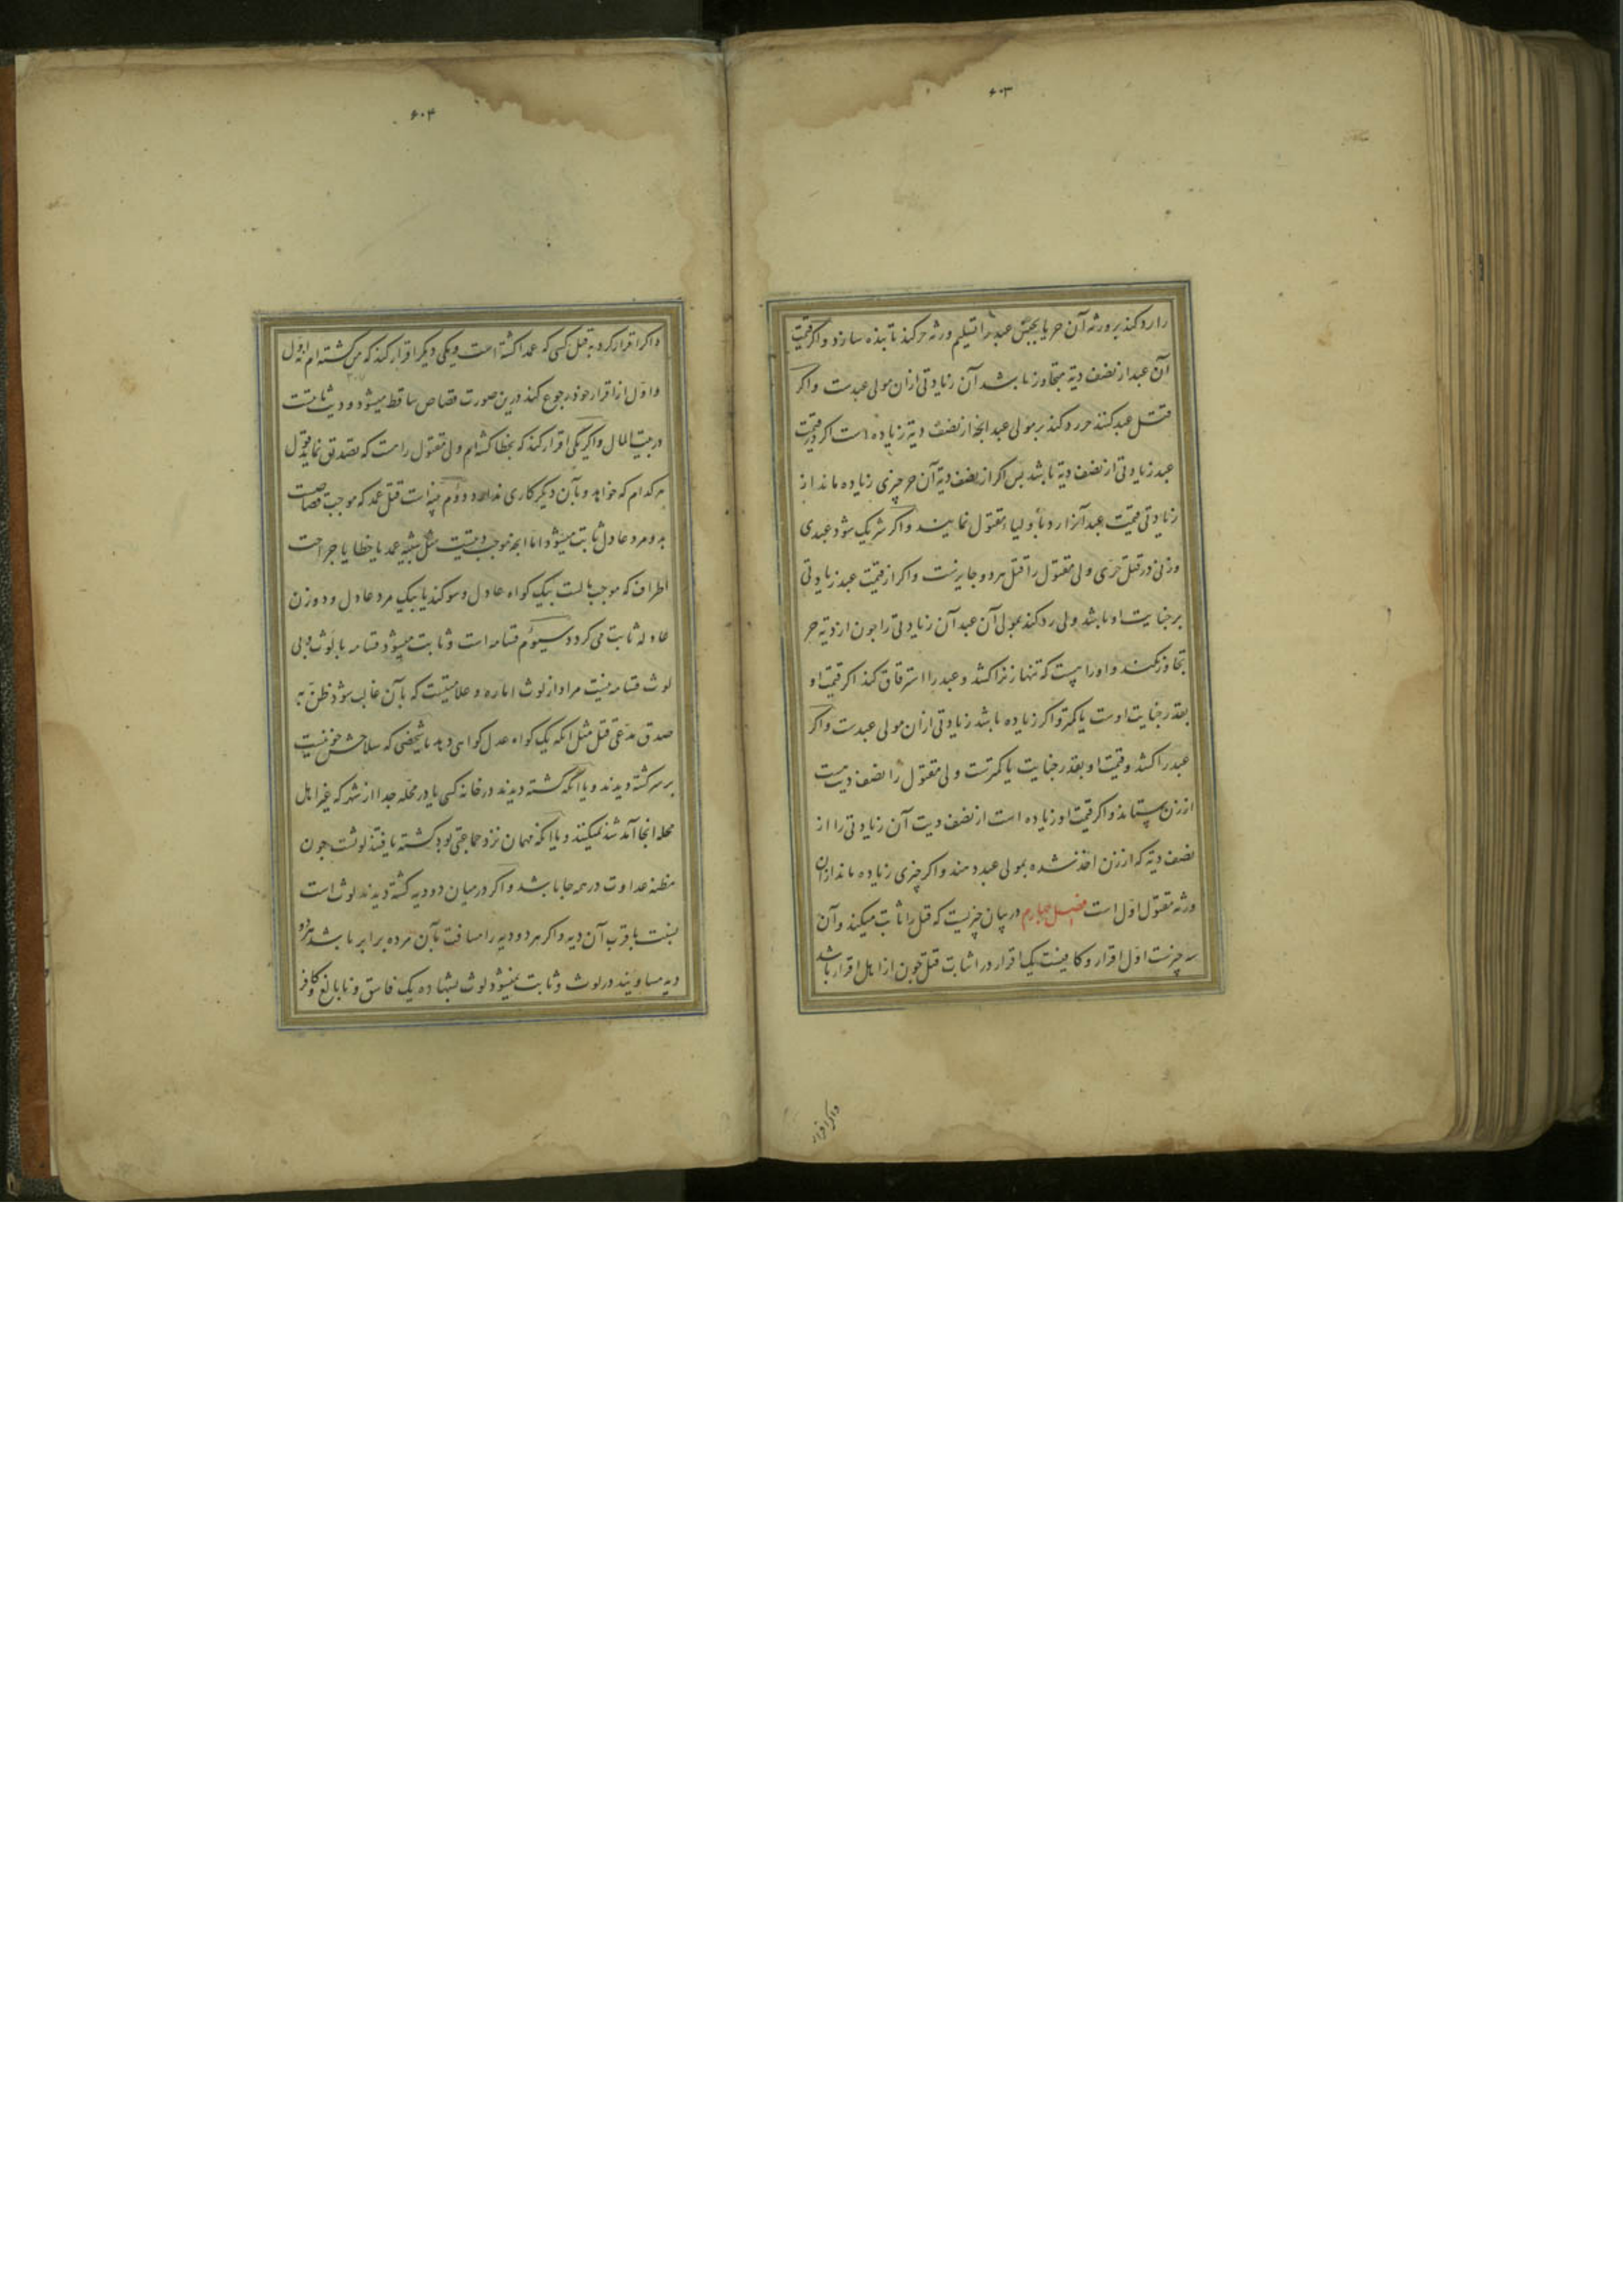 ۶۰۳
را رد کند بر ورثه آن حر یا بجنی عبد را تسلیم ورثه حر کند تا بنده سازد و اگر قیمت
آن عبد از نصف دیة متجاوز باشد آن زیادتی ازان مولی عبدست و اگر
قتل عبد کنند حر رد کند بر مولی عبد انچه از نصف دیة زیاده است اگر در قیمت
عبد زیادتی از نصف دیة باشد پس اگر از نصف دیة آن حر چیزی زیاده ماند از
زیادتی قیمت عبد آنرا رد باولیاء مقتول نمایند و اگر شریک شود عبدی
و زنی در قتل حری ولی مقتول را قتل هردو جایزست و اگر از قیمت عبد زیادتی
بر جنایت او باشد ولی رد کند بمولی آن عبد آن زیادتی را چون از دیة حر
تجاوز نکند و او را هست که تنها زنرا کشد و عبد را استرقاق کند اگر قیمت او
بقدر جنایت اوست یا کمتر و اگر زیاده باشد زیادتی ازان مولی عبدست و اگر
عبد را کشد و قیمت او بقدر جنایت یا کمترست ولی مقتول را نصف دیتست
از زن بستاند و اگر قیمت او زیاده است از نصف دیت آن زیادتی را از
نصف دیة که از زن اخذ شده بمولی عبد دهند و اگر چیزی زیاده ماند ازان
ورثه مقتول اول است فصل چهارم در بیان چیزیست که قتل را ثابت میکند و آن
سه چیزست اول اقرار و کافیست یک اقرار در اثبات قتل چون از اهل اقرار باشد
و اگر اقرار
۶۰۴
و اگر اقرار کرد به قتل کسی که عمدا کشته است و یکی دیگر اقرار کند که من کشته‌ام
و اول از اقرار خود رجوع کند درین صورت قصاص ساقط میشود و دیت ثابتست
در بیت المال و اگر یکی اقرار کند که بخطا کشته‌ام ولی مقتول راست که تصدیق نماید قول
هر کدام که خواهد و بآن دیگر کاری ندارد دوم بینه است قتل عمد که موجب قصاصست
بدو مرد عادل ثابت میشود اما انچه موجب دیتست مثل شبیه عمد یا خطا یا جراحت
اطراف که موجب مالست بیک گواه عادل و سوکند یا بیک مرد عادل و دو زن
عادله ثابت می گردد سیوم قسامه است و ثابت میشود قسامه با لوث و بی
لوث قسامه نیست مراد از لوث اماره و علامتیست که بآن غالب شود ظن به
صدق مدعی قتل مثل انکه یک گواه عدل گواهی دهد یا شخصی که سلاحش خونیست
بر سر کشته دیدند و یا انکه کشته دیدند در خانه کسی یا در محله جدا از شهر که غیر اهل
محله انجا آمد شد نمیکنند و یا انکه مهمان نزد جماعتی بود کشته یافتند لوثست چون
مظنه عداوت در همه جا باشد و اگر در میان دو دیه کشته دیدند لوث است
بنسبت باقرب آن دیه و اگر هر دو دیه را مسافت بآن مرده برابر باشد هردو
دیه مساویند در لوث و ثابت نمیشود لوث بشهاده یک فاسق و نابالغ و کافر